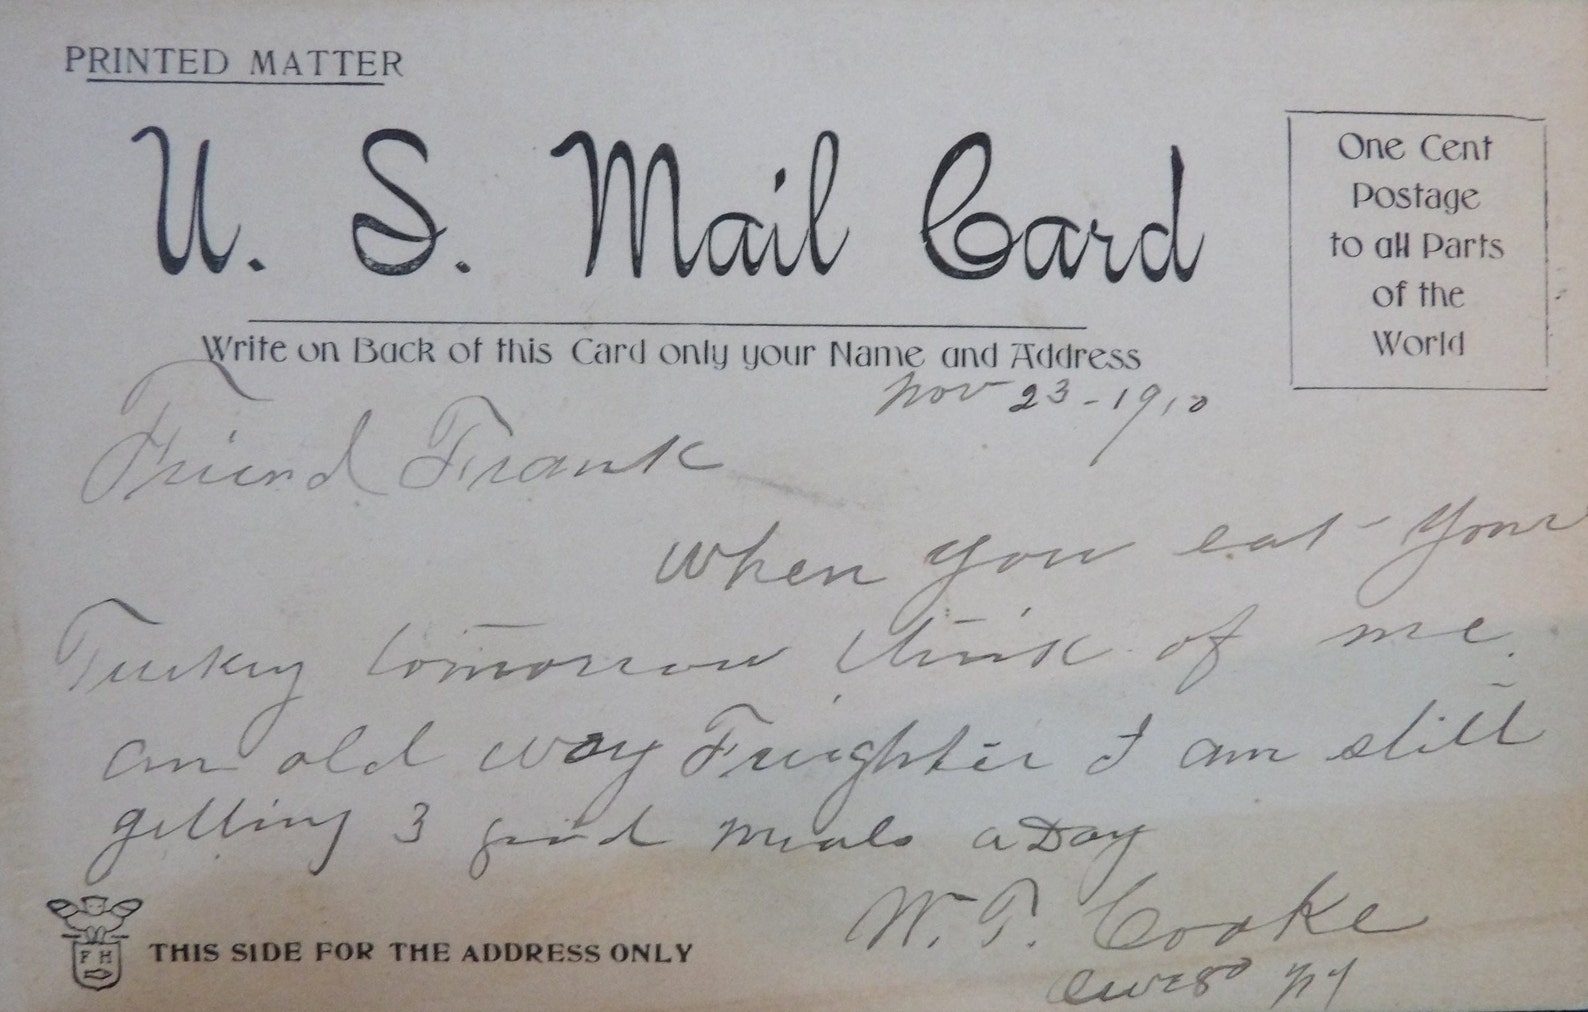 PRINTED MATTER
U. S. Mail Card
One Cent
Postage
to all Parts
of the
World
Write on Back of this Card only your Name and Address
Nov 23-1910
Friend Frank
When you eat your
Turkey tomorrow think of me.
an old way Freighter I am still
getting 3 good meals a Day
W. T. Cooke
Owego NY
F H
THIS SIDE FOR THE ADDRESS ONLY